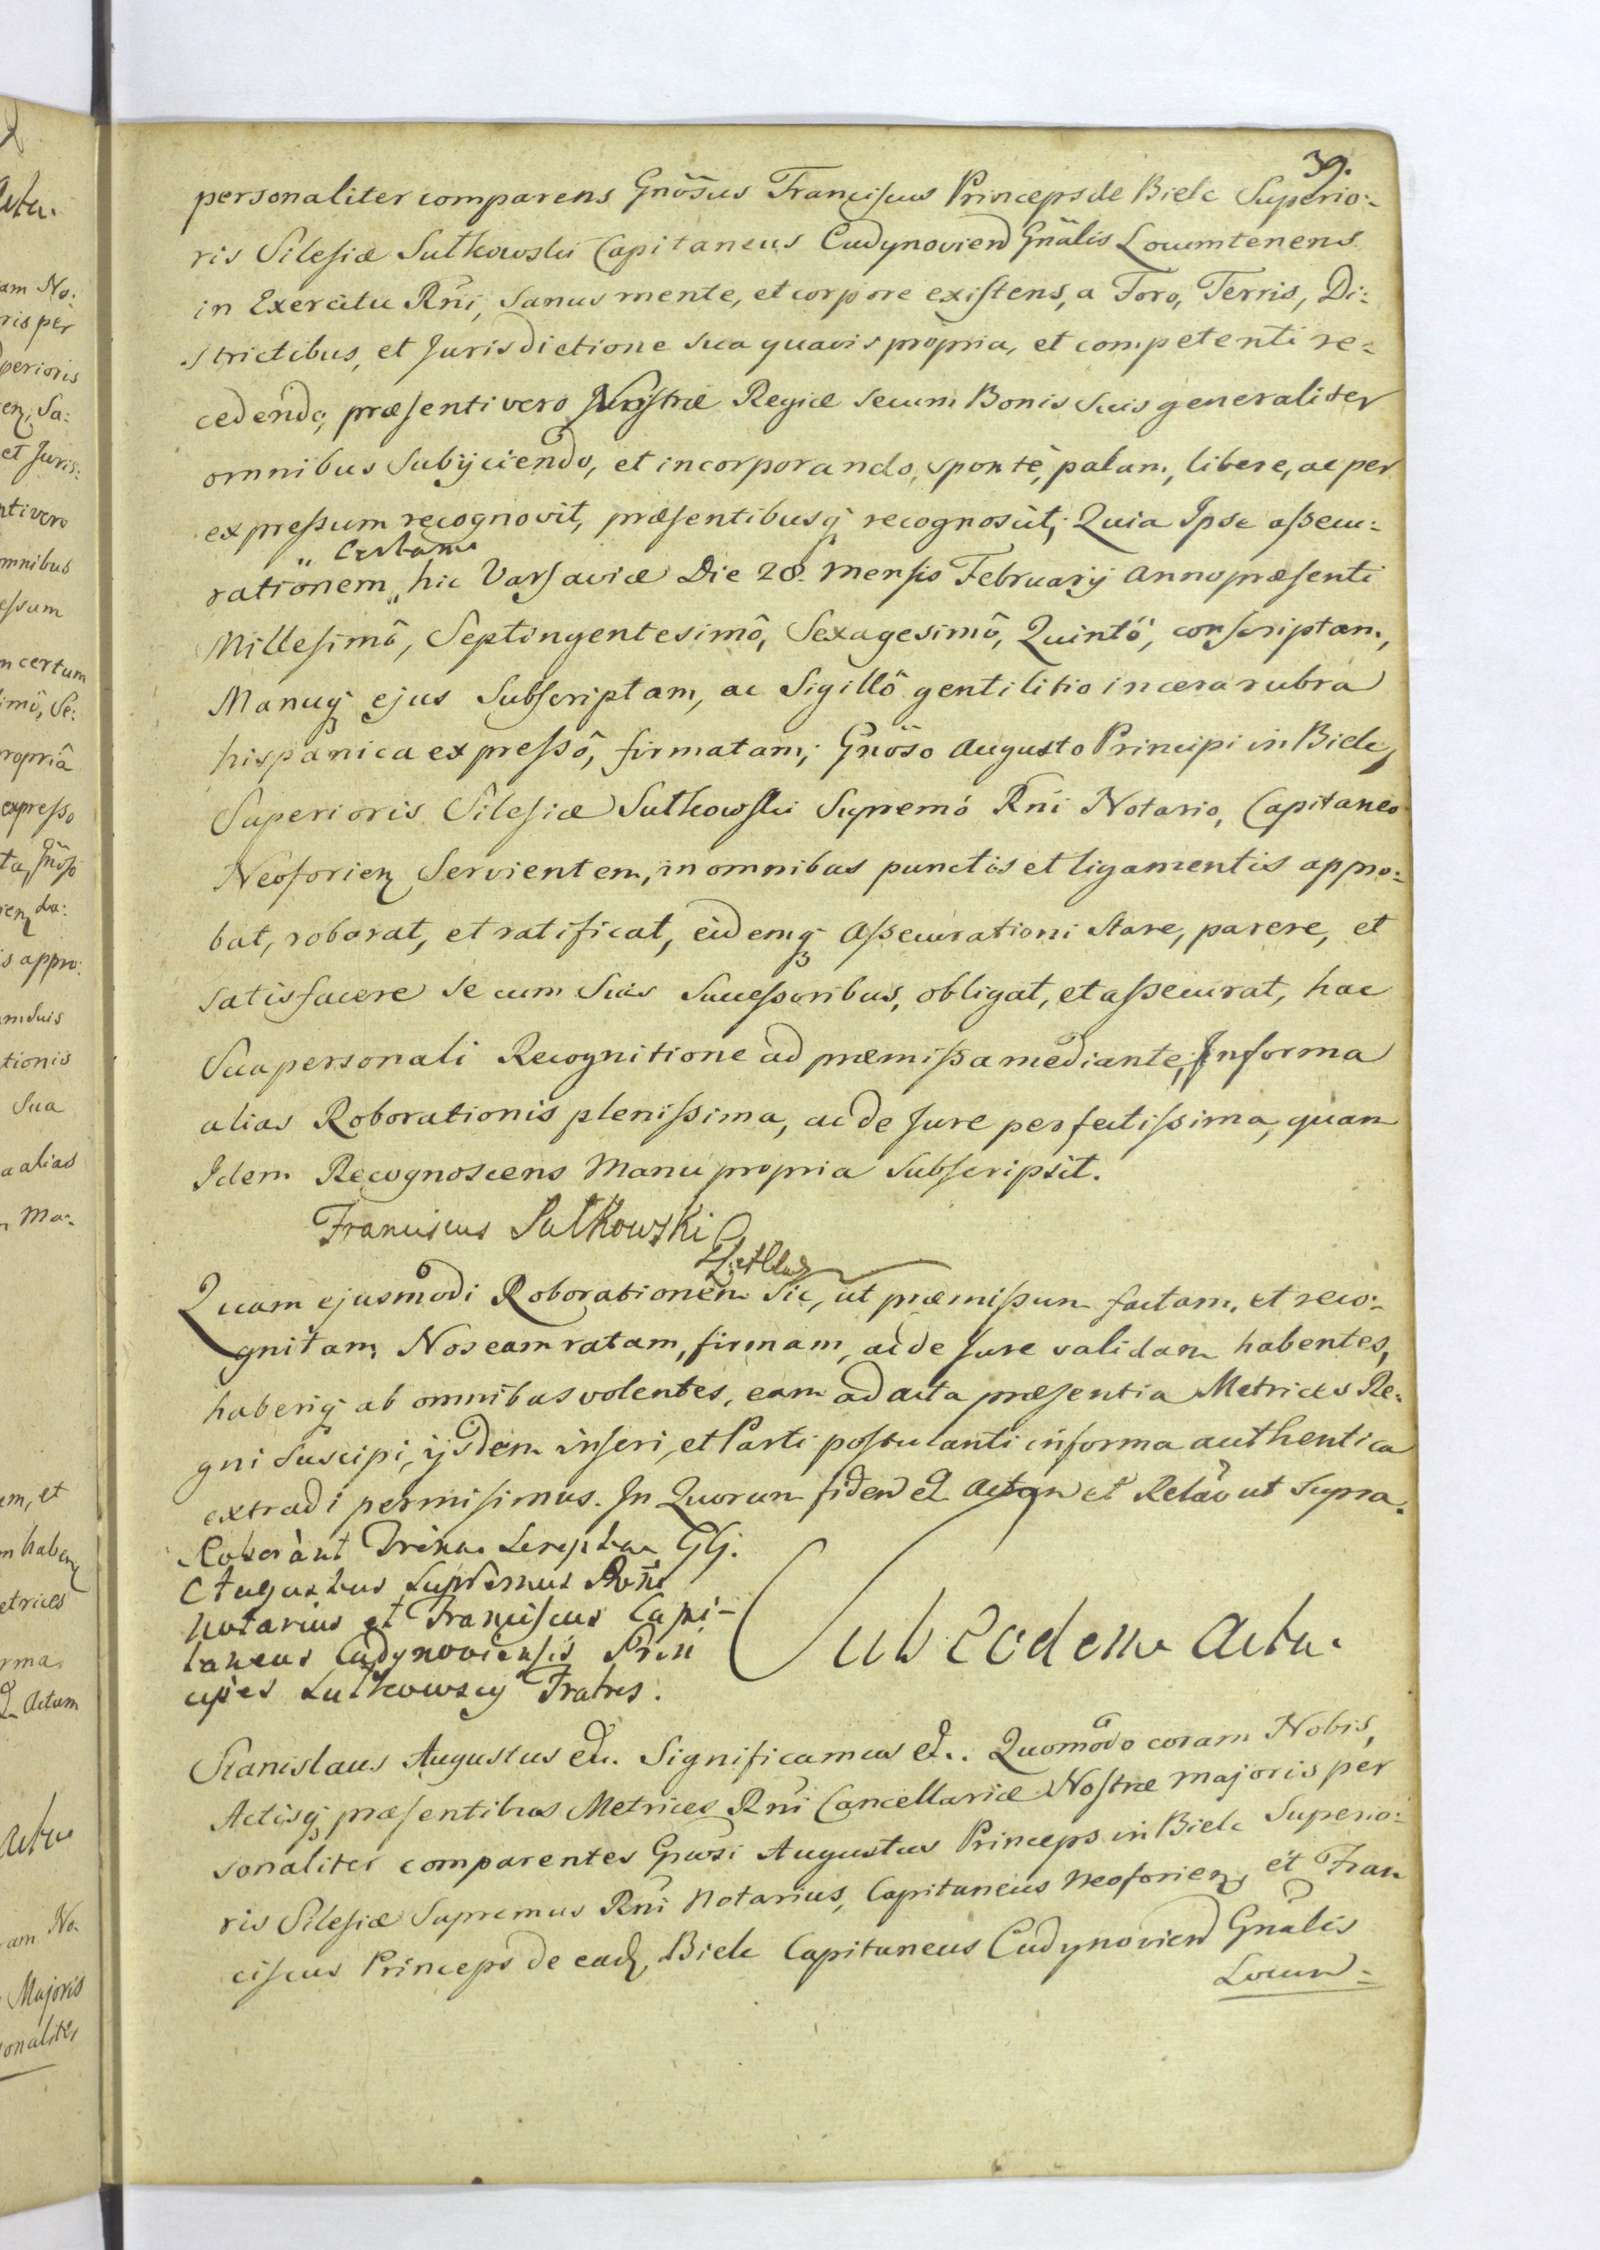 39.
personaliter comparens Gnosus Franciscus Princeps de Biele Superio:
ris Silesiæ Sułkowski Capitaneus Cudynovien Gnalis Locumtenens
in Exercitu Rni, sanus mente, et corpore existens, a Foro, Terris, Di:
strictibus, et Jurisdictione sua quavis propria, et competenti re:
cedendo, præsenti vero Nostræ Regiæ secum Bonis suis generaliter
omnibus subijciendo, et incorporando, sponte, palam, libere, ac per
expressum recognovit, præsentibusq recognoscit; Quia Ipse assecu:
certam
rationem hic Varsaviæ Die 28. mensis Februarij Anno præsenti
Millesimô, Septingentesimô, Sexagesimô, Quintô, conscriptam,
Manuq ejus Subscriptam, ac Sigillô gentilitio in cera rubra
hispanica expressô, firmatam; Gnoso Augusto Principi in Biele,
Superioris Silesiæ Sułkowski Supremo Rni Notario, Capitaneo
Neoforien Servientem, in omnibus punctis et ligamentis appro:
bat, roborat, et ratificat, eidemq Assecurationi stare, parere, et
satisfacere se cum suis Successoribus, obligat, et assecurat, hac
Sua personali Recognitione ad præmissa mediante, In forma
alias Roborationis plenissima, ac de Jure perfectissima, quam
Idem Recognoscens Manu propria Subscripsit.
Franciscus Sułkowski
Quam ejusmodi Roborationem sic, ut præmissum factam, et reco:
gnitam, Nos eam ratam, firmam, ac de Jure validam habentes,
haberiq ab omnibus volentes, eam ad acta præsentia Metrices Re:
gni suscipi, ijsdem inseri, et Parti postulanti in forma authentica
extradi permisimus. In Quorum fidem et Actum et Relao ut supra.
Roborant Scriptum Gsj.
Augustus Supremus Rni
Notarius et Franciscus Capi-
taneus Cudynoviensis Prin
cipes Sułkowscy Fratres.
Sub eodem Actu.
Stanislaus Augustus etc. Significamus etc. Quomodo coram Nobis,
Actisq præsentibus Metrices Rni Cancellariæ Nostræ Majoris per
sonaliter comparentes Gnosi Augustus Princeps in Biele Superio:
ris Silesiæ Supremus Rni Notarius, Capitaneus Neoforien, et Fran
ciscus Princeps de ead, Biele Capitaneus Cudynovien Gnalis
Locum-